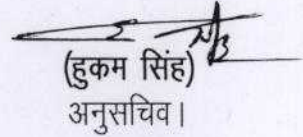 (हुकम सिंह)
अनुसचिव।